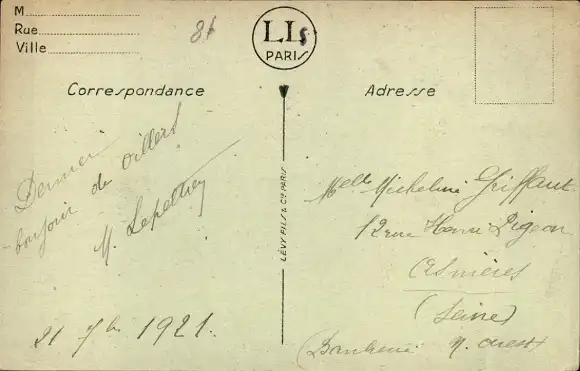 M
Rue
Ville
LLs
PARIS
Correspondance
Adresse
Dernier
bonjour de Villers
M. Lepeltier
21 7bre 1921.
LÉVY FILS & Cie PARIS
Melle Micheline Griffaut
12 rue Henri Pigeon
Asnières
(Seine)
(Banlieue N. ouest)